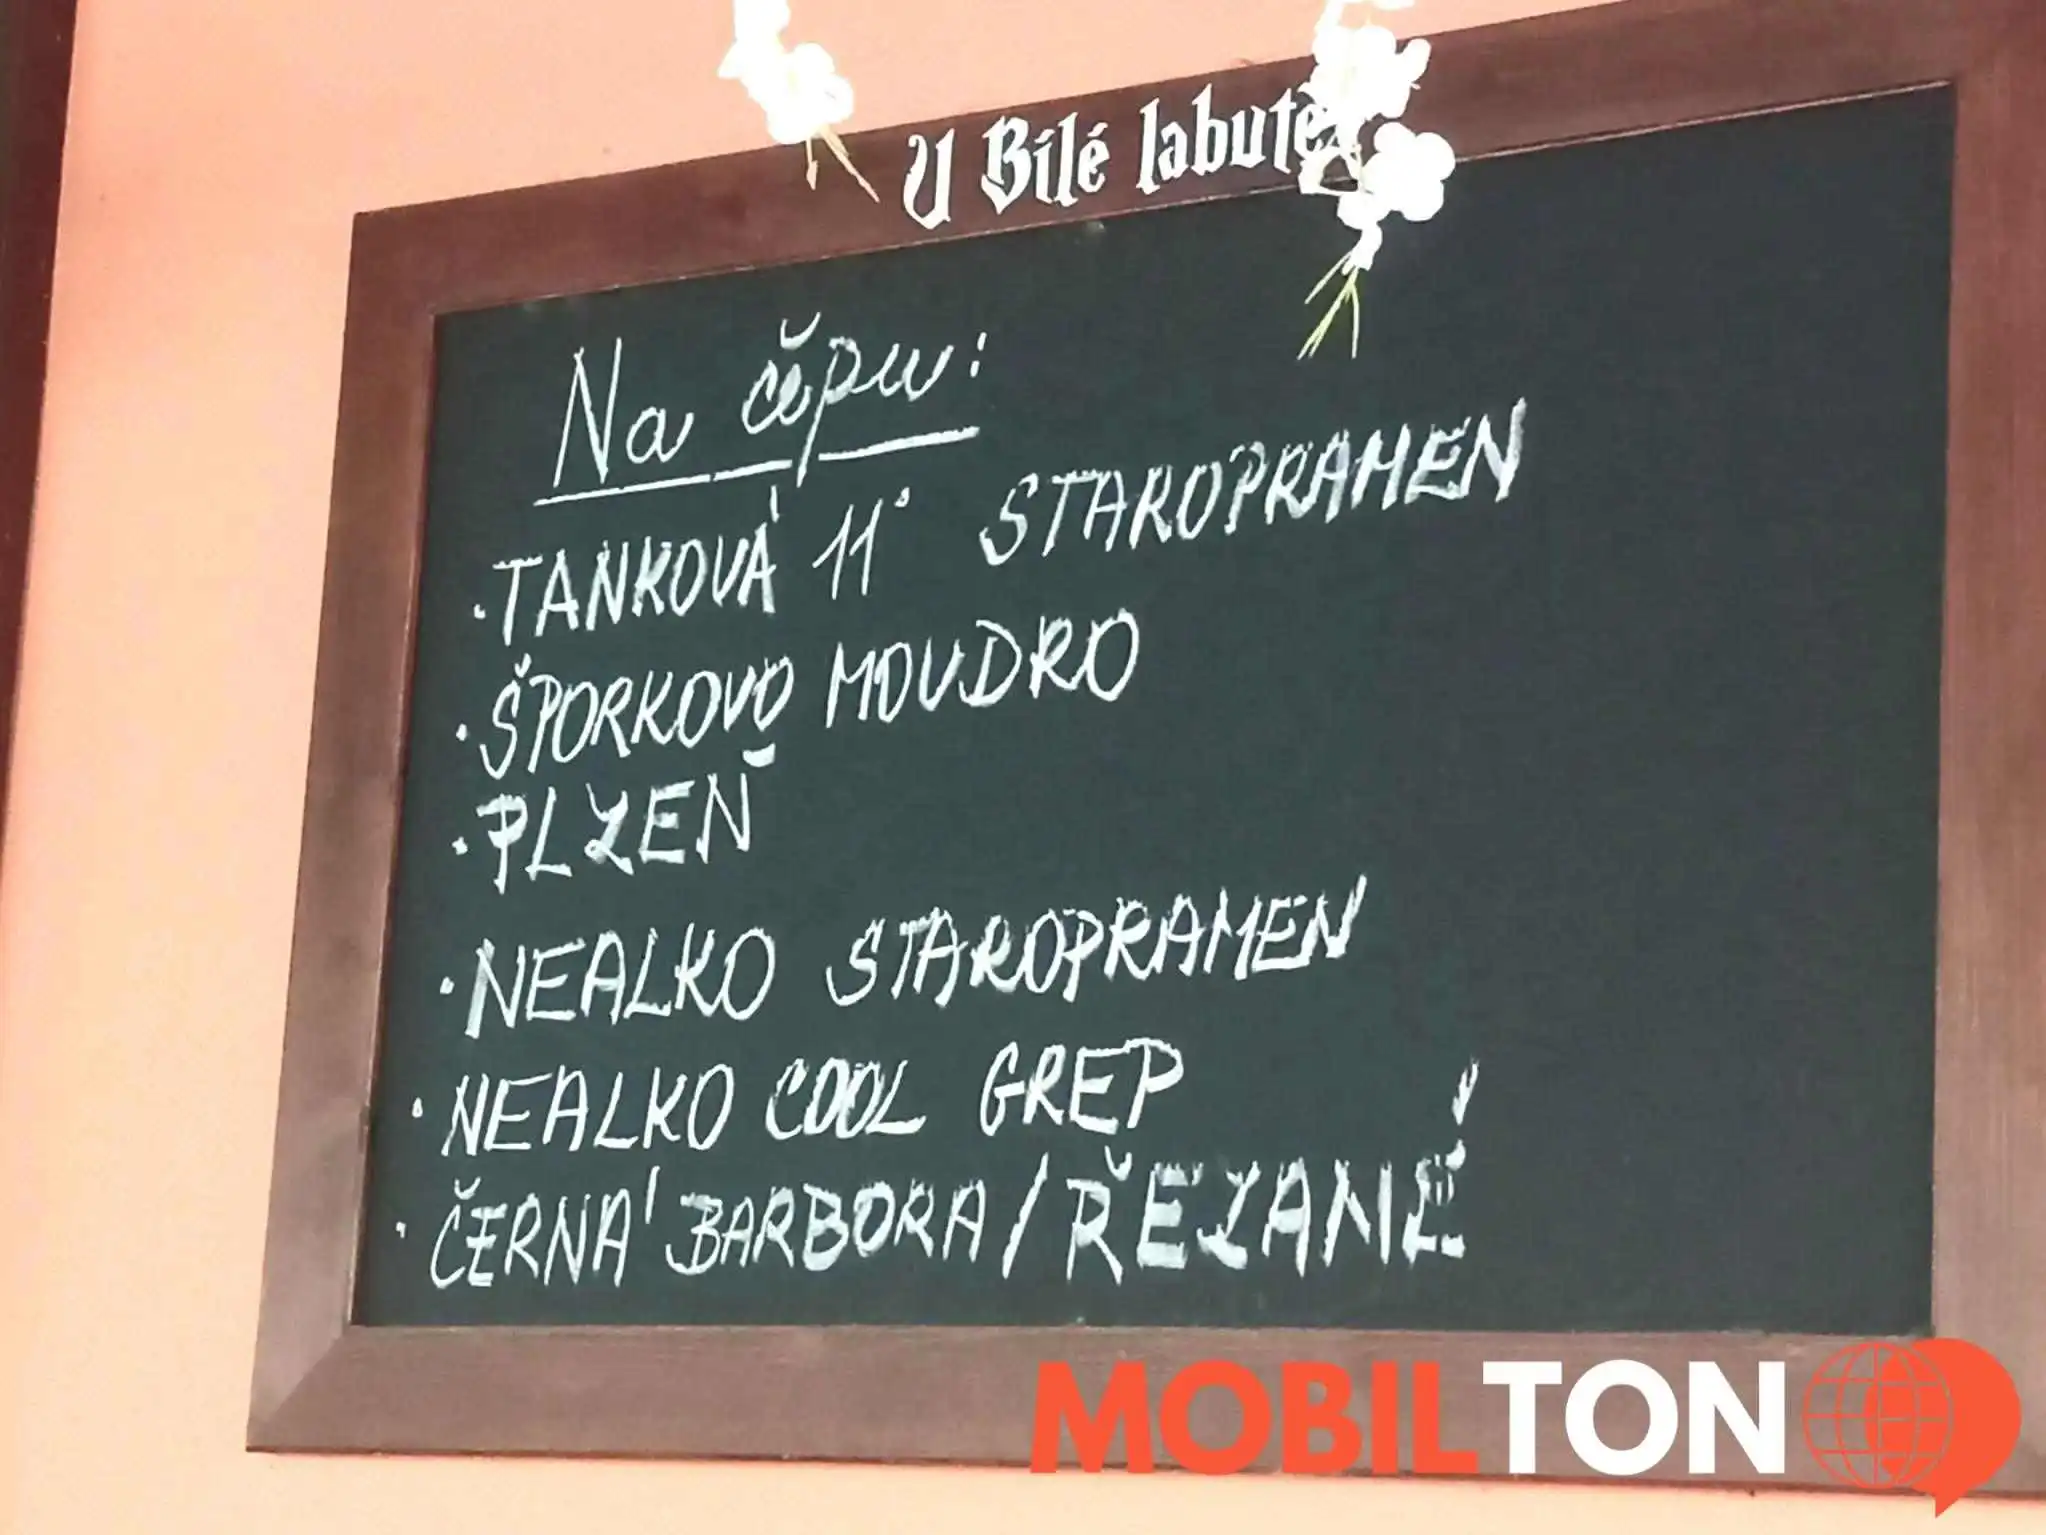 U Bílé labutě
Na čepu:
• TANKOVÁ 11° STAROPRAMEN
• ŠPORKOVO MOUDRO
• PLZEŇ
• NEALKO STAROPRAMEN
• NEALKO COOL GREP
• ČERNÁ BARBORA / ŘEZANÉ
MOBILTON